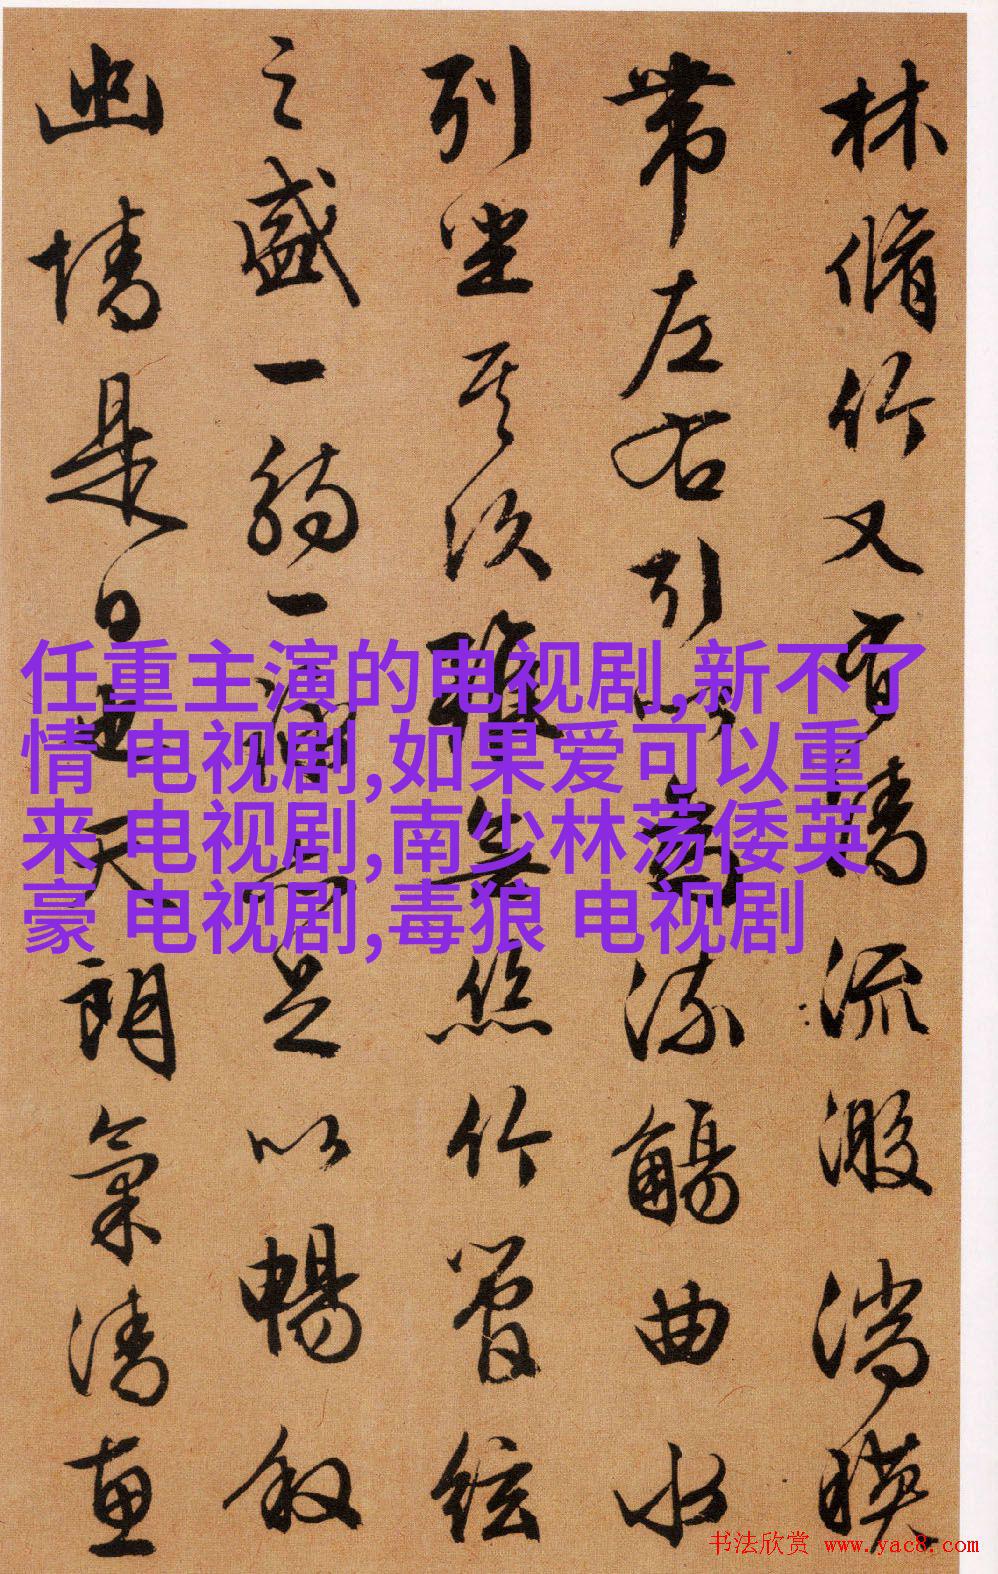 林脩竹又有清流激湍暎
帶左右引以為流觴曲水
列坐其次雖無絲竹管絃
之盛一觴一詠亦足以暢叙
幽情是日也天朗氣清惠
任重主演的电视剧,新不了
情 电视剧,如果爱可以重
来 电视剧,南少林荡倭英
豪 电视剧,毒狼 电视剧
书法欣赏 www.yac8.com